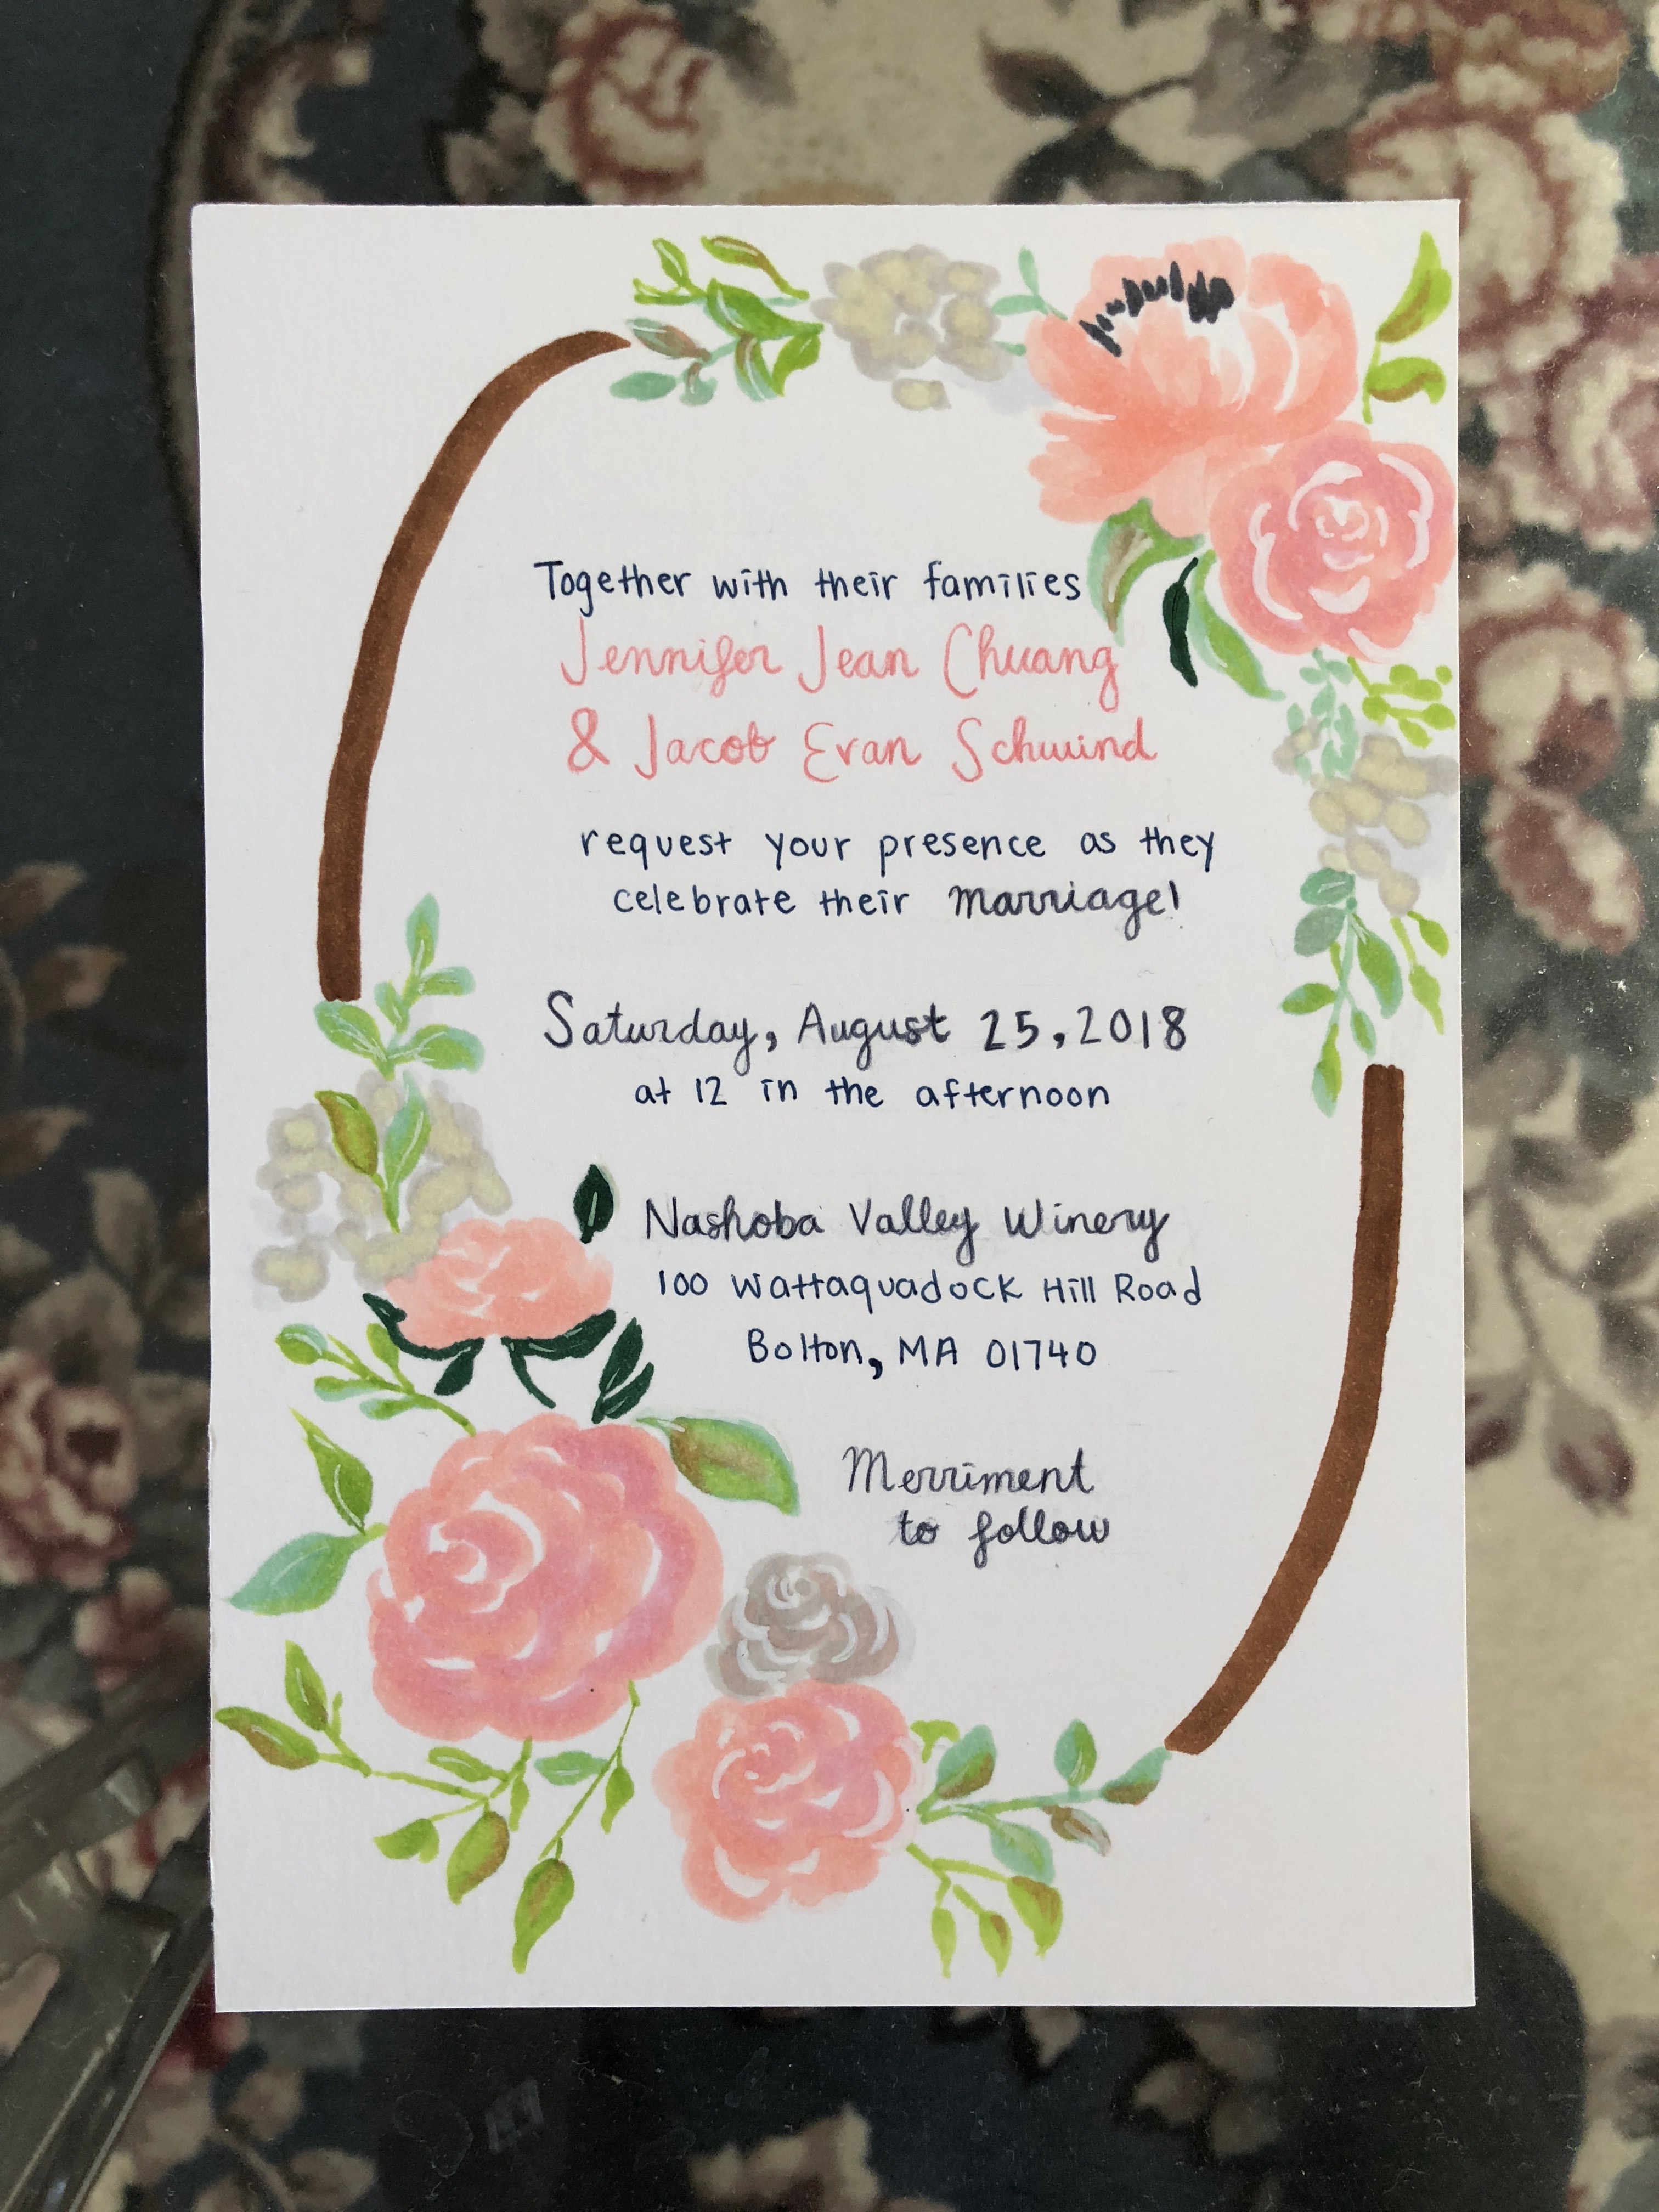 Together with their families
Jennifer Jean Chuang
& Jacob Evan Schwind
request your presence as they
celebrate their marriage!
Saturday, August 25, 2018
at 12 in the afternoon
Nashoba Valley Winery
100 Wattaquadock Hill Road
Bolton, MA 01740
Merriment
to follow